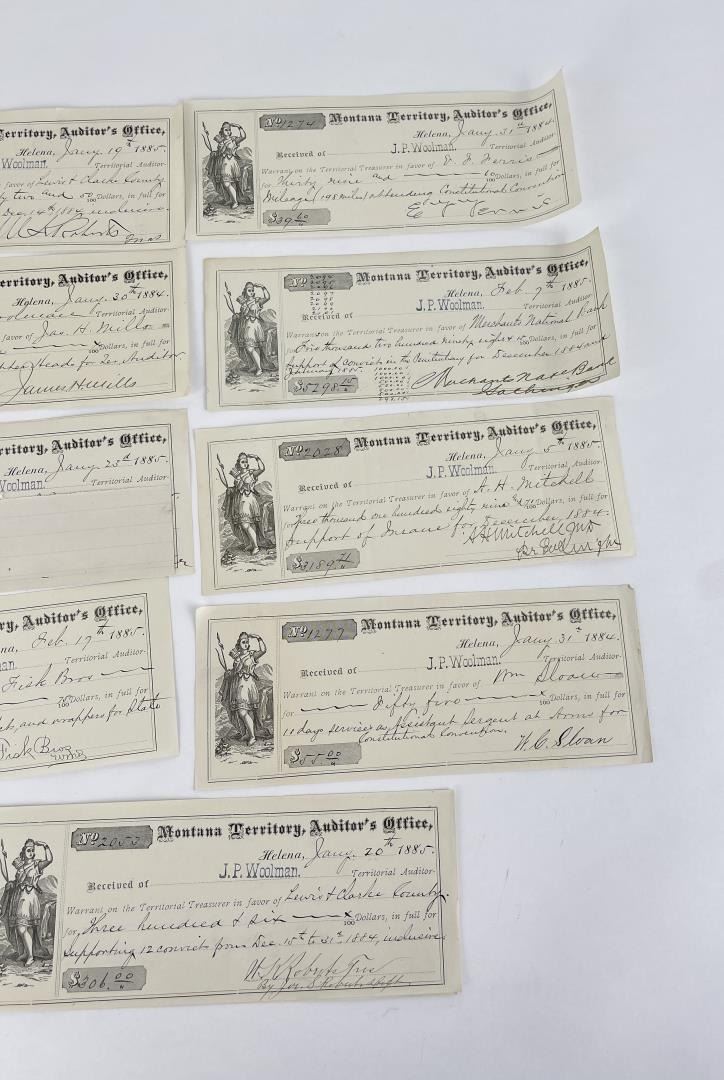 Territory, Auditor's Office,
Jany 19th 1885.
Woolman. Territorial Auditor
in favor of Lewis & Clarke County
ty two and 50/100 Dollars, in full for
Dec. 14th 1884 inclusive
No 1274 Montana Territory, Auditor's Office,
Helena, Jany 31st 1884.
Received of J. P. Woolman. Territorial Auditor-
Warrant on the Territorial Treasurer in favor of Ferris
for Thirty nine and 60/100 Dollars, in full for
Mileage (198 miles) attending Constitutional Convention
$39 60
Territory, Auditor's Office,
Helena, Jany 20th 1884.
Territorial Auditor
in favor of Jas. H. Mills
/100 Dollars, in full for
Heads for Ter. Auditor
James H. Mills
Montana Territory, Auditor's Office,
Helena, Feb. 7th 1885.
Received of J. P. Woolman. Territorial Auditor-
Warrant on the Territorial Treasurer in favor of Merchants National Bank
for Five thousand two hundred ninety eight & 15/100 Dollars, in full for
support of Convicts in the Penitentiary for December 1884 and
January 1885.
$5298 15
Merchants Natl Bank
rritory, Auditor's Office,
Helena, Jany 23d 1885.
Woolman. Territorial Auditor-
No 2028 Montana Territory, Auditor's Office,
Helena, Jany 5th 1885.
Received of J. P. Woolman. Territorial Auditor-
Warrant on the Territorial Treasurer in favor of A. H. Mitchell
for Three thousand one hundred eighty nine & 71/100 Dollars, in full for
support of Insane for December, 1884.
$3189 71
A H Mitchell
ry, Auditor's Office,
Feb. 17th 1885.
man. Territorial Auditor-
Fisk Bros
/100 Dollars, in full for
and wrappers for State
Fisk Bros
No 1277 Montana Territory, Auditor's Office,
Helena, Jany 31st 1884.
Received of J. P. Woolman. Territorial Auditor-
Warrant on the Territorial Treasurer in favor of Wm Sloan
for Fifty five x/100 Dollars, in full for
11 days services as Assistant Sergent at Arms for
Constitutional Convention.
$55.00
W. C. Sloan
No 2053 Montana Territory, Auditor's Office,
Helena, Jany. 20th 1885.
Received of J. P. Woolman. Territorial Auditor-
Warrant on the Territorial Treasurer in favor of Lewis & Clarke County.
for Three hundred & six x/100 Dollars, in full for
supporting 12 convicts from Dec. 15th to 31st 1884, inclusive
$306.00
W. K. Roberts